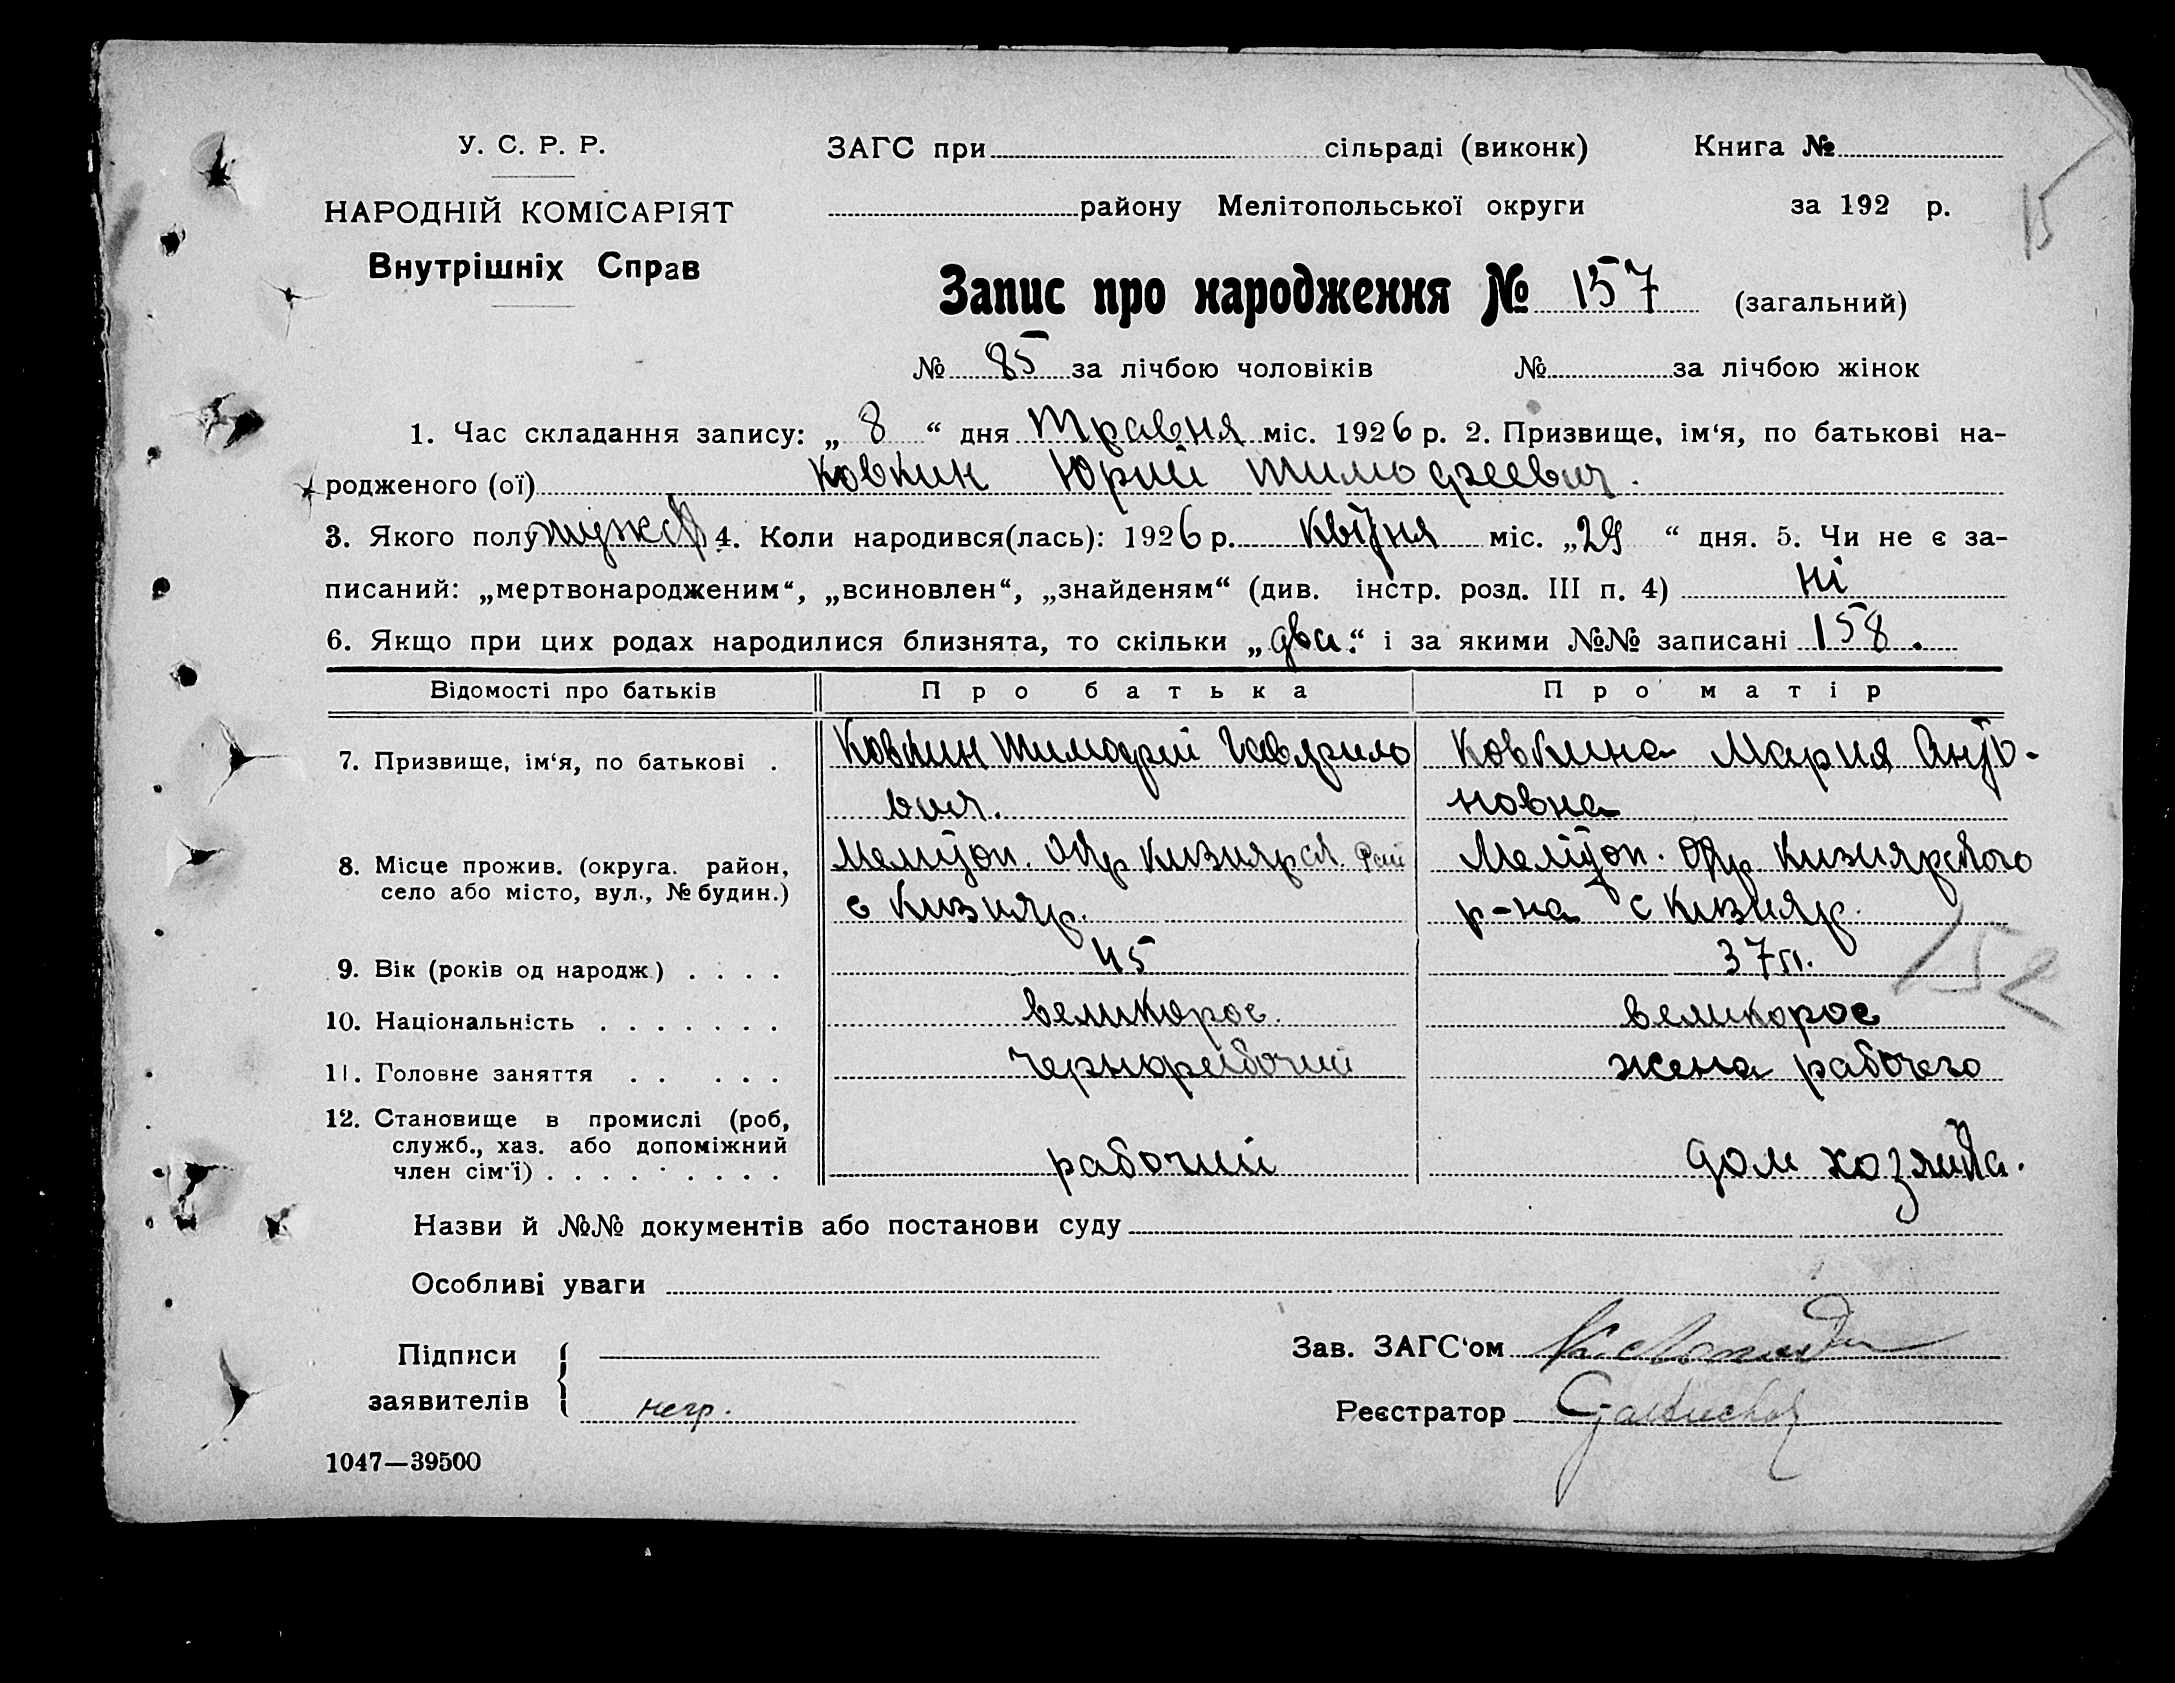 У. С. Р. Р.
НАРОДНІЙ КОМІСАРІЯТ
Внутрішніх Справ
ЗАГС при сільраді (виконк) Книга №
району Мелітопольської округи за 192 р.
15
Запис про народження № 157 (загальний)
№ 85 за лічбою чоловіків № за лічбою жінок
1. Час складання запису: „ 8 “ дня Травня міс. 1926 р. 2. Призвище, ім‘я, по батькові на-
родженого (ої) Ковкин Юрий Тимофеевич.
3. Якого полу 4. Коли народився(лась): 1926 р. Квітня міс. „29 “ дня. 5. Чи не є за-
писаний: „мертвонародженим“, „всиновлен“, „знайденям“ (див. інстр. розд. III п. 4) ні
6. Якщо при цих родах народилися близнята, то скільки „два.“ і за якими №№ записані 158.
Відомості про батьків Про батька Про матір
7. Призвище, ім‘я, по батькові . Ковкин Тимофій Гаврило Ковкина Мария Анто-
вич. новна
8. Місце прожив. (округа. район, Меліtоп. Окр Кизиярск. Рай Меліtоп. Окр Кизиярского
село або місто, вул., № будин.) с Кизияр. р-на с Кизияр.
9. Вік (років од народж.) . . . . 45 37л.
152
10. Національність . . . . . . . великорос. великорос
11. Головне заняття . . . . . чернорабочий жена рабочего
12. Становище в промислі (роб,
служб., хаз. або допоміжний
член сім‘ї) . . . . . . . . рабочий дом хозяйка.
Назви й №№ документів або постанови суду
Особливі уваги
Підписи
заявителів негр.
Зав. ЗАГС‘ом
Реєстратор
1047—39500